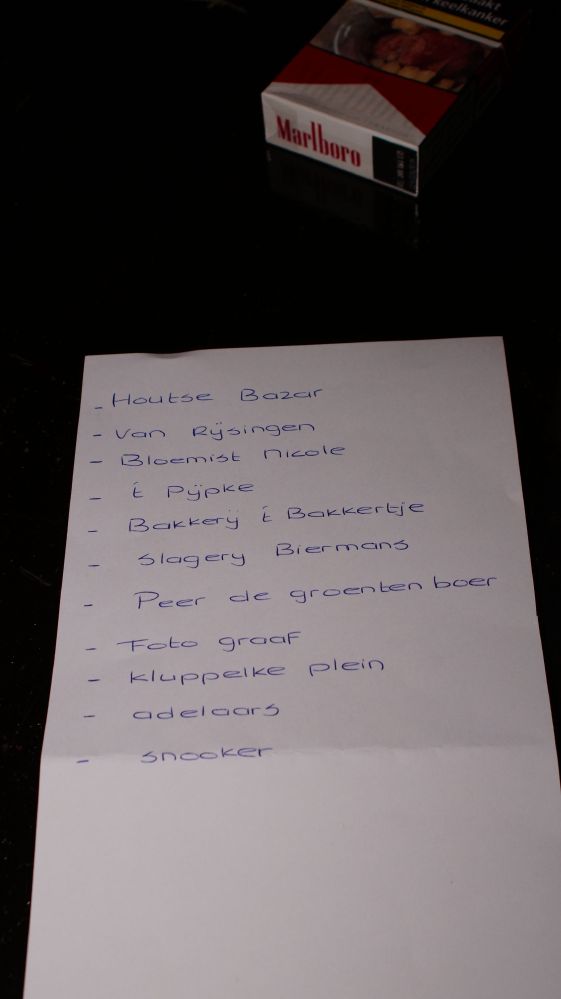 keelkanker
Marlboro
- Houtse Bazar
- Van Rijsingen
- Bloemist Nicole
- 't Pijpke
- Bakkerij 't Bakkertje
- Slagery Biermans
- Peer de groenten boer
- Foto graaf
- Kluppelke plein
- adelaars
- snooker